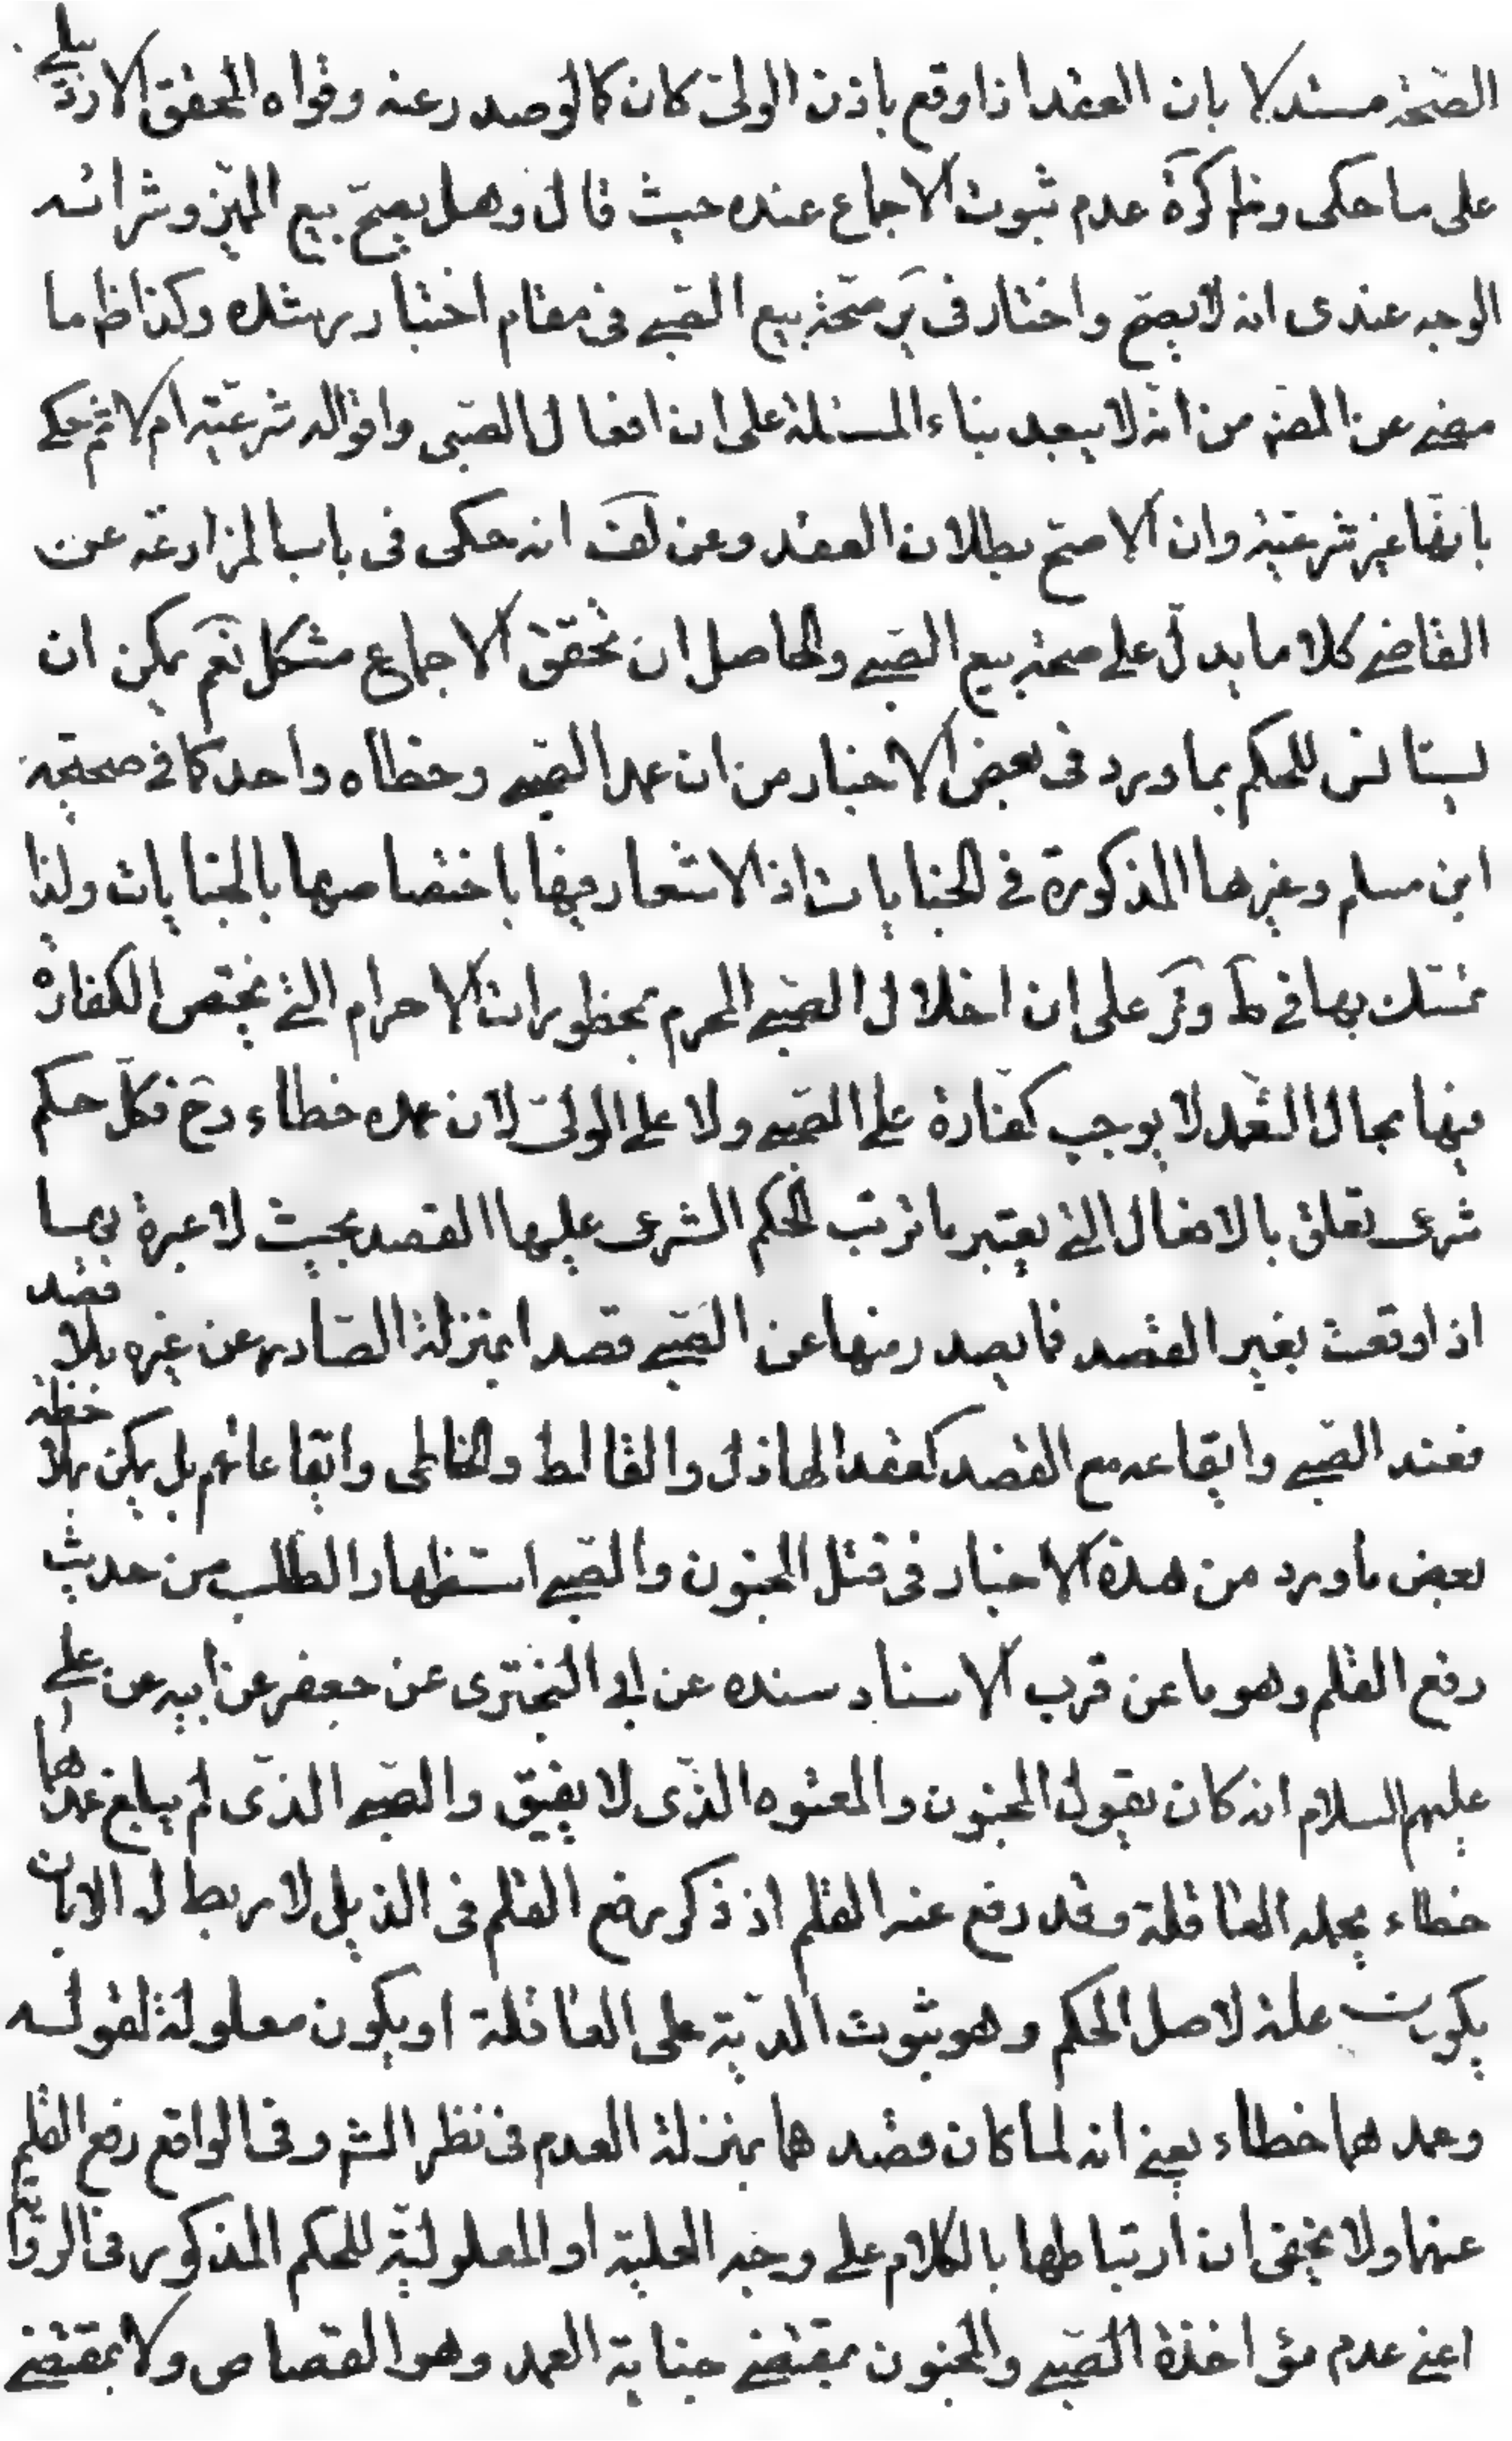 الصّحّة مستدلا بان العقد اذا وقع باذن الولىّ كان كما لو صدر عنه وقواه المحقق الاردبيلى
على ما حكى وظ كرة عدم ثبوت الاجماع عنده حيث قال وهل يصحّ بيع المميّز وشرائه
الوجه عندى انه لا يصحّ واختار فى ير صحّة بيع الصّبى فى مقام اختبار رشده وكذا ظ ما
مضى عن المص من انّه لا يبعد بناء المسئلة على ان افعال الصّبى واقواله شرعيّة ام لا ثم حكى
بانّها غير شرعيّة وان الاصحّ بطلان العقد وعن لف انه حكى فى باب المزارعة عن
القاضى كلاما يدلّ على صحة بيع الصّبى والحاصل ان تحقق الاجماع مشكل نعم يمكن ان
يستانس للحكم بما ورد فى بعض الاخبار من ان عمد الصّبى وخطاه واحد كما فى صحيحة
ابن مسلم وغيرها المذكورة فى الجنايات اذ لا اشعار فيها باختصاصها بالجنايات ولذا
تمسّك بها فى ط وئر على ان اخلال الصّبى المحرم بمحظورات الاحرام التى يختص الكفارة
فيها بحال التعمّد لا يوجب كفّارة على الصّبى ولا على الولىّ لان عمده خطاء وح فكلّ حكم
شرعى تعلق بالافعال التى يعتبر ما ترتب الحكم الشرعى عليها القصد بحيث لا عبرة بها
اذا وقعت بغير القصد فما يصدر منها عن الصّبى قصدا بمنزلة الصّادر عن غيره بلا قصد
فعقد الصّبى وايقاعه مع القصد كعقد الهاذل والغالط والخاطى وايقاعاتهم بل يمكن بملاحظة
بعض ما ورد من هذه الاخبار فى قتل المجنون والصّبى استظهار المطلب من حديث
رفع القلم وهو ما عن قرب الاسناد بسنده عن ابى البخترى عن جعفر عن ابيه عن على
عليهم السلام انه كان يقول المجنون والمعتوه الذّى لا يفيق والصّبى الذّى لم يبلغ عمدهما
خطاء يحمله العاقلة وقد رفع عنه القلم اذ ذكر رفع القلم فى الذيل لا ربط له الا بان
يكون علة لاصل الحكم وهو ثبوت الدّية على العاقلة او يكون معلولة لقوله
وعمدهما خطاء يعنى انه لما كان قصدهما بمنزلة العدم فى نظر الش وفى الواقع رفع القلم
عنهما ولا يخفى ان ارتباطها بالكلام على وجه العلية او المعلوليّة للحكم المذكور فى الرواية
اعنى عدم مؤاخذة الصّبى والمجنون بمقتضى جناية العمد وهو القصاص ولا بمقتضى